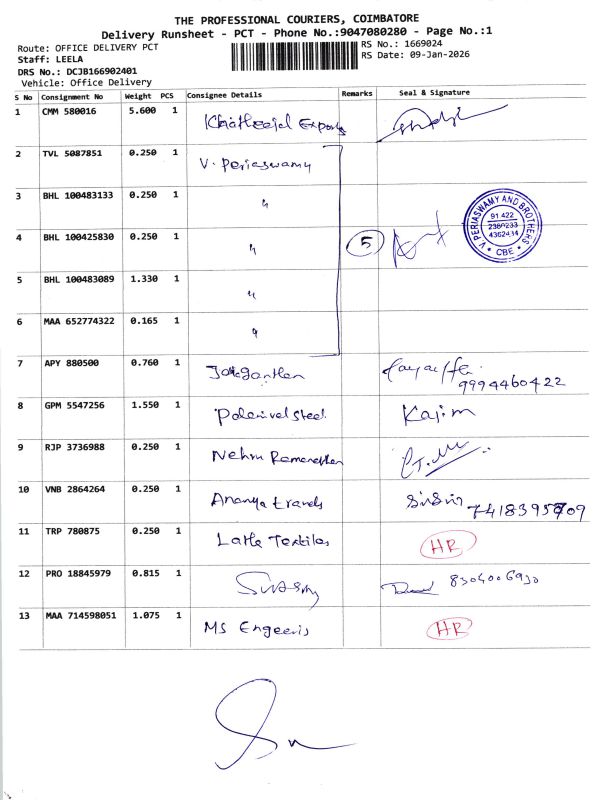 THE PROFESSIONAL COURIERS, COIMBATORE
Delivery Runsheet - PCT - Phone No.:9047080280 - Page No.:1
Route: OFFICE DELIVERY PCT
RS No.: 1669024
Staff: LEELA
RS Date: 09-Jan-2026
DRS No.: DCJB166902401
Vehicle: Office Delivery
S No Consignment No Weight PCS Consignee Details Remarks Seal & Signature
1 CMM 580016 5.600 1 Exports
2 TVL 5087851 0.250 1 V. Periaswamy
3 BHL 100483133 0.250 1 "
4 BHL 100425830 0.250 1 " 5
V. PERIASWAMY AND BROTHERS
91 422
2380233
4362434
* CBE *
5 BHL 100483089 1.330 1 "
6 MAA 652774322 0.165 1 "
7 APY 880500 0.760 1
9994460422
8 GPM 5547256 1.550 1 Steel Kajim
9 RJP 3736988 0.250 1 Nehru
10 VNB 2864264 0.250 1 Ananya travels
11 TRP 780875 0.250 1 Textiles HR
12 PRO 18845979 0.815 1
13 MAA 714598051 1.075 1 MS HR